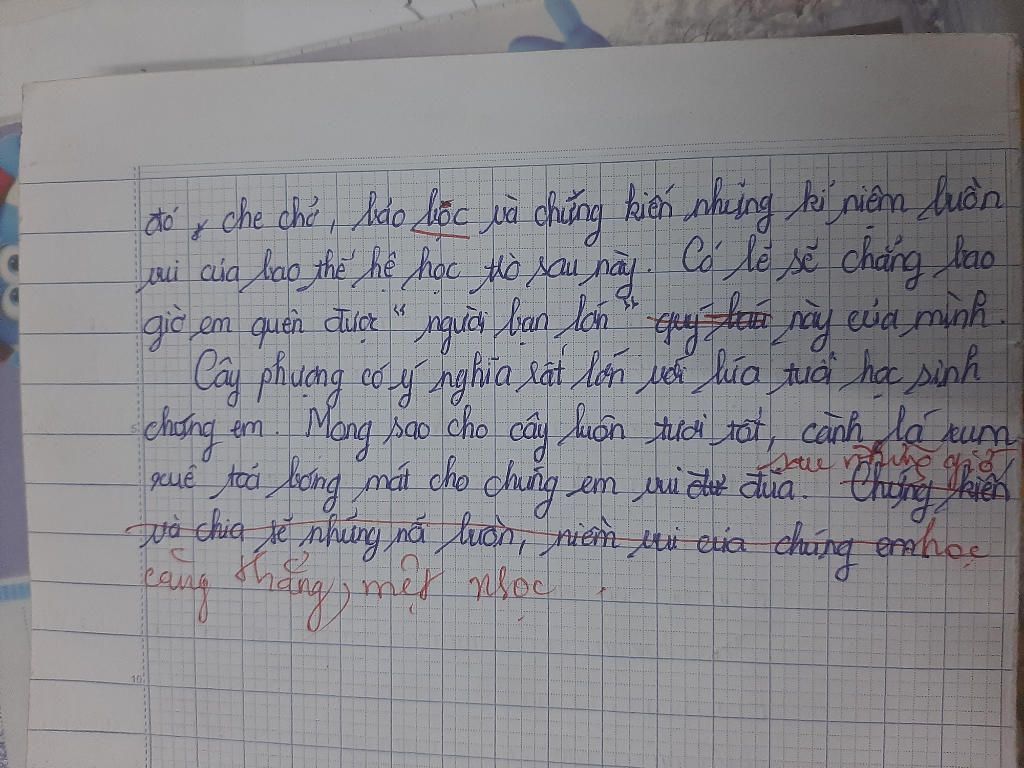 đó, che chở, bảo bọc và chứng kiến những kỉ niệm buồn
vui của bao thế hệ học trò sau này. Có lẽ sẽ chẳng bao
giờ em quên được "người bạn lớn" quý báu này của mình.
Cây phượng có ý nghĩa rất lớn với lứa tuổi học sinh
chúng em. Mong sao cho cây luôn tươi tốt, cành lá xum
sau những giờ
xuê toả bóng mát cho chúng em vui đùa. Chứng kiến
và chia sẻ những nỗi buồn, niềm vui của chúng em học
căng thẳng, mệt nhọc.